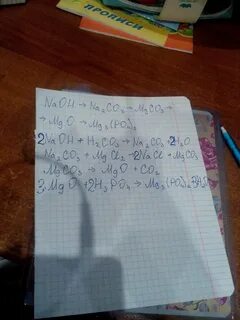 ПРОПИСИ
NaOH → Na₂CO₃ → MgCO₃ →
→ MgO → Mg₃(PO₄)₂
2NaOH + H₂CO₃ → Na₂CO₃ + 2H₂O
Na₂CO₃ + MgCl₂ → 2NaCl + MgCO₃
MgCO₃ → MgO + CO₂
3MgO + 2H₃PO₄ → Mg₃(PO₄)₂ 3H₂O